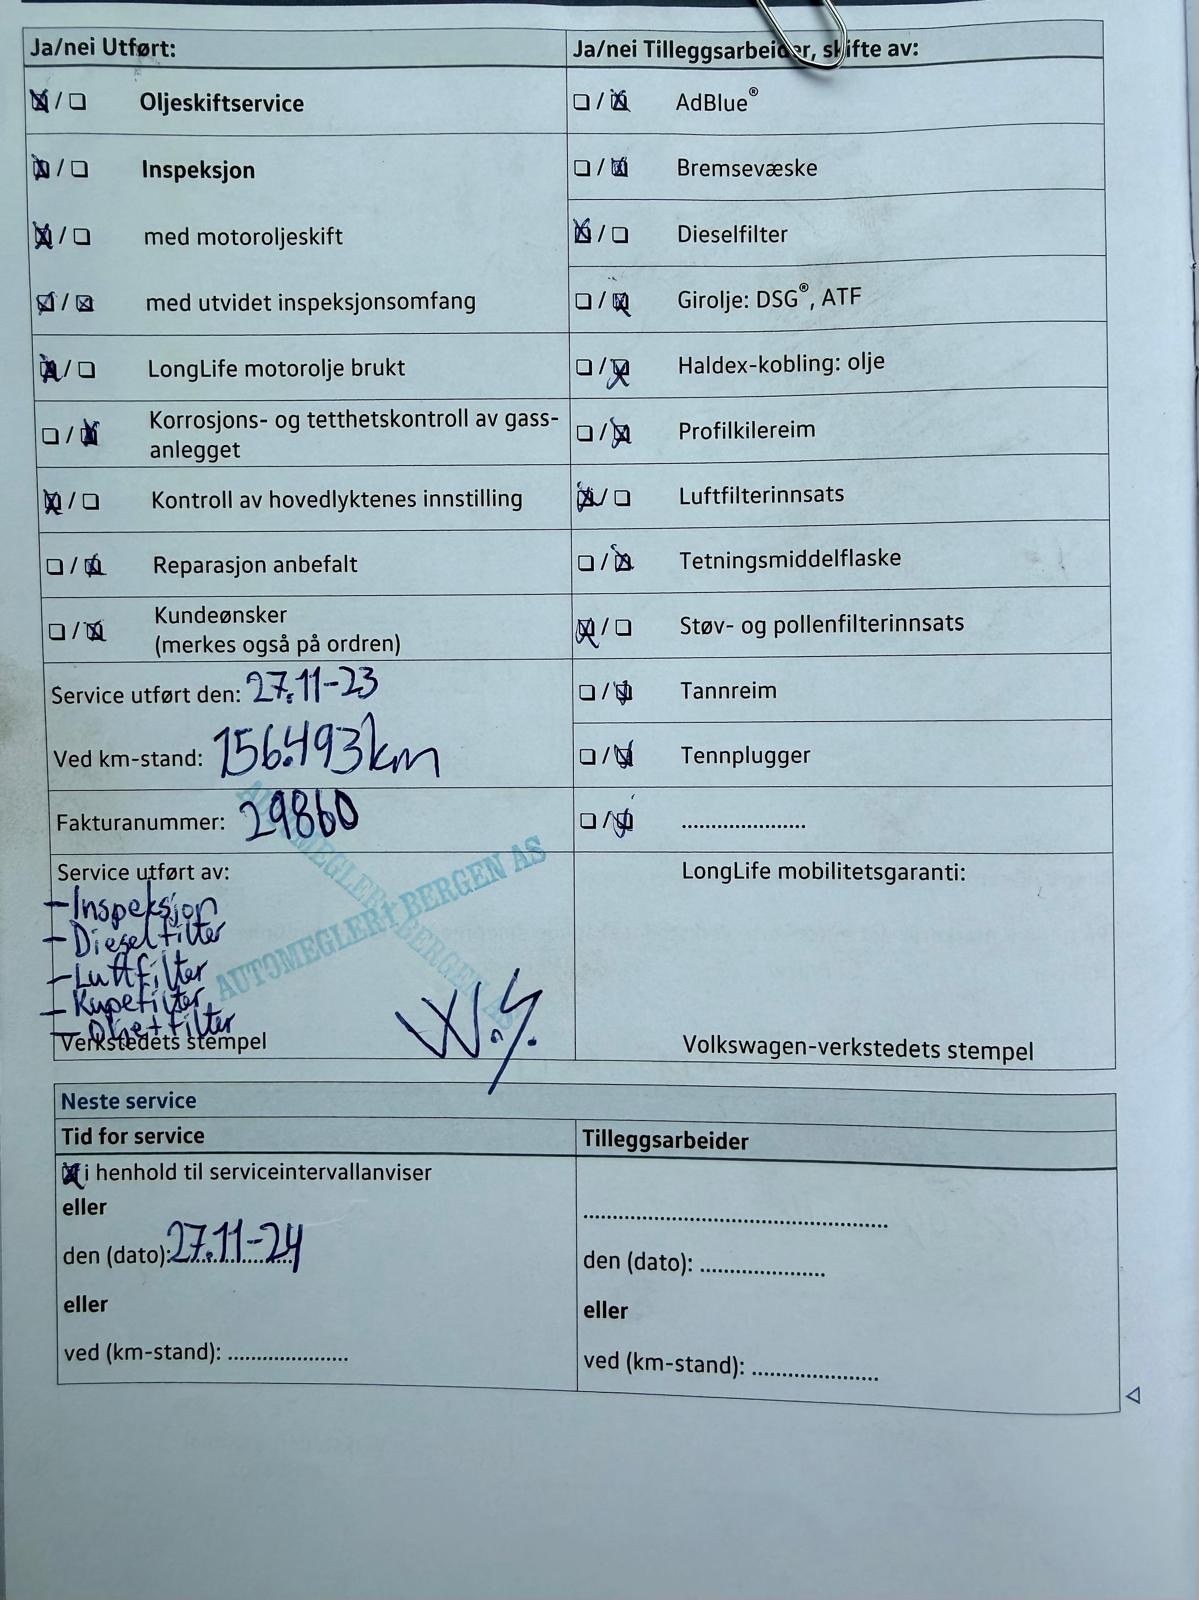 Ja/nei Utført:
Oljeskiftservice
Inspeksjon
med motoroljeskift
med utvidet inspeksjonsomfang
LongLife motorolje brukt
Korrosjons- og tetthetskontroll av gass-
anlegget
Kontroll av hovedlyktenes innstilling
Reparasjon anbefalt
Kundeønsker
(merkes også på ordren)
Service utført den: 27.11-23
Ved km-stand: 156.493km
Fakturanummer: 29860
Service utført av:
-Inspeksjon
-Dieselfilter
-Luftfilter
-Kupefilter
filter
Verkstedets stempel
AUTOMEGLER1 BERGEN AS
AUTOMEGLER1 BERGEN AS
W.S.
Ja/nei Tilleggsarbeider, skifte av:
AdBlue®
Bremsevæske
Dieselfilter
Girolje: DSG®, ATF
Haldex-kobling: olje
Profilkilereim
Luftfilterinnsats
Tetningsmiddelflaske
Støv- og pollenfilterinnsats
Tannreim
Tennplugger
....................
LongLife mobilitetsgaranti:
Volkswagen-verkstedets stempel
Neste service
Tid for service
i henhold til serviceintervallanviser
eller
den (dato): 27.11-24
eller
ved (km-stand): ....................
Tilleggsarbeider
..................................................
den (dato): ....................
eller
ved (km-stand): ....................